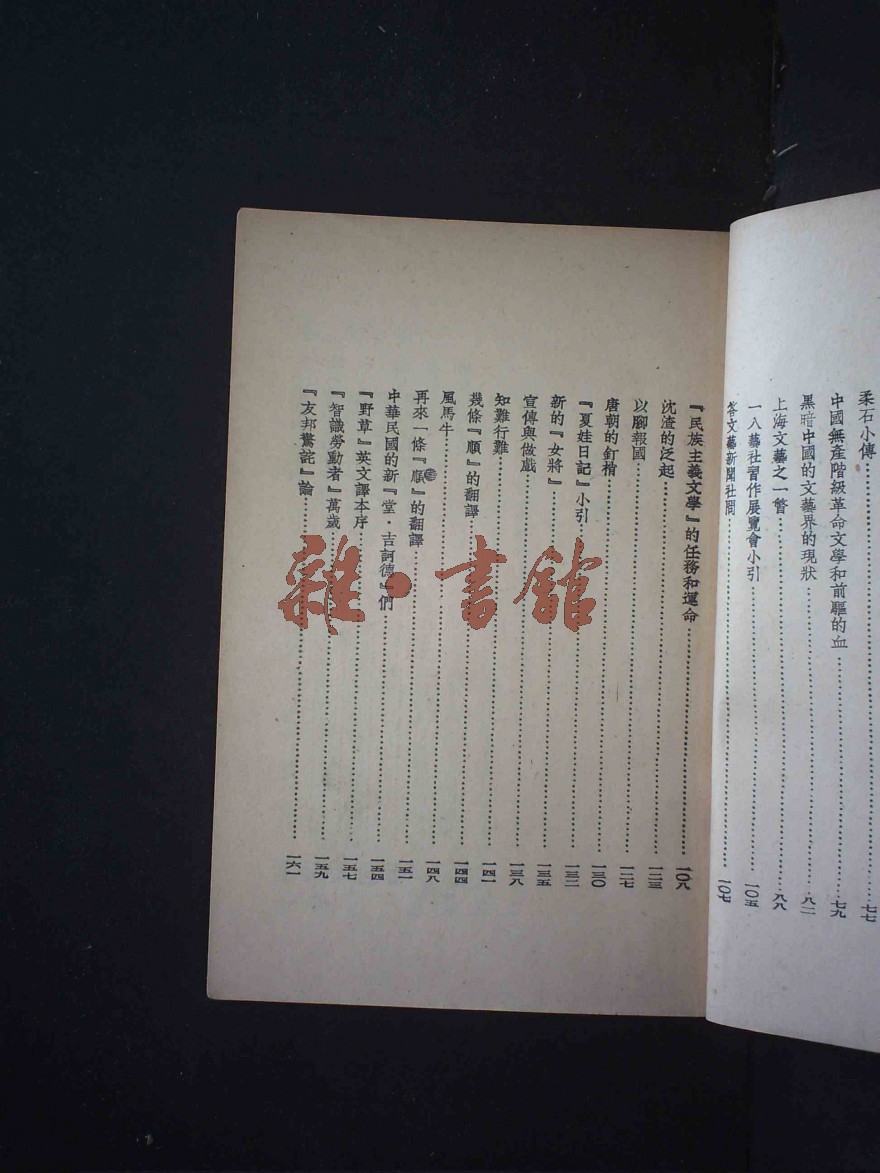 柔石小傳……七七
中國無產階級革命文學和前驅的血……七九
黑暗中國的文藝界的現狀……八二
上海文藝之一瞥……八八
一八藝社習作展覽會小引……一〇五
答文藝新聞社問……一〇七
『民族主義文學』的任務和運命……一〇八
沈渣的泛起……一二三
以腳報國……一二七
唐朝的釘梢……一三〇
『夏娃日記』小引……一三二
新的『女將』……一三五
宣傳與做戲……一三八
知難行難……一四一
幾條『順』的翻譯……一四四
風馬牛……一四八
再來一條『順』的翻譯……一五一
中華民國的新『堂·吉訶德』們……一五四
『野草』英文譯本序……一五七
『智識勞動者』萬歲……一五九
『友邦驚詫』論……一六一
雜·書館